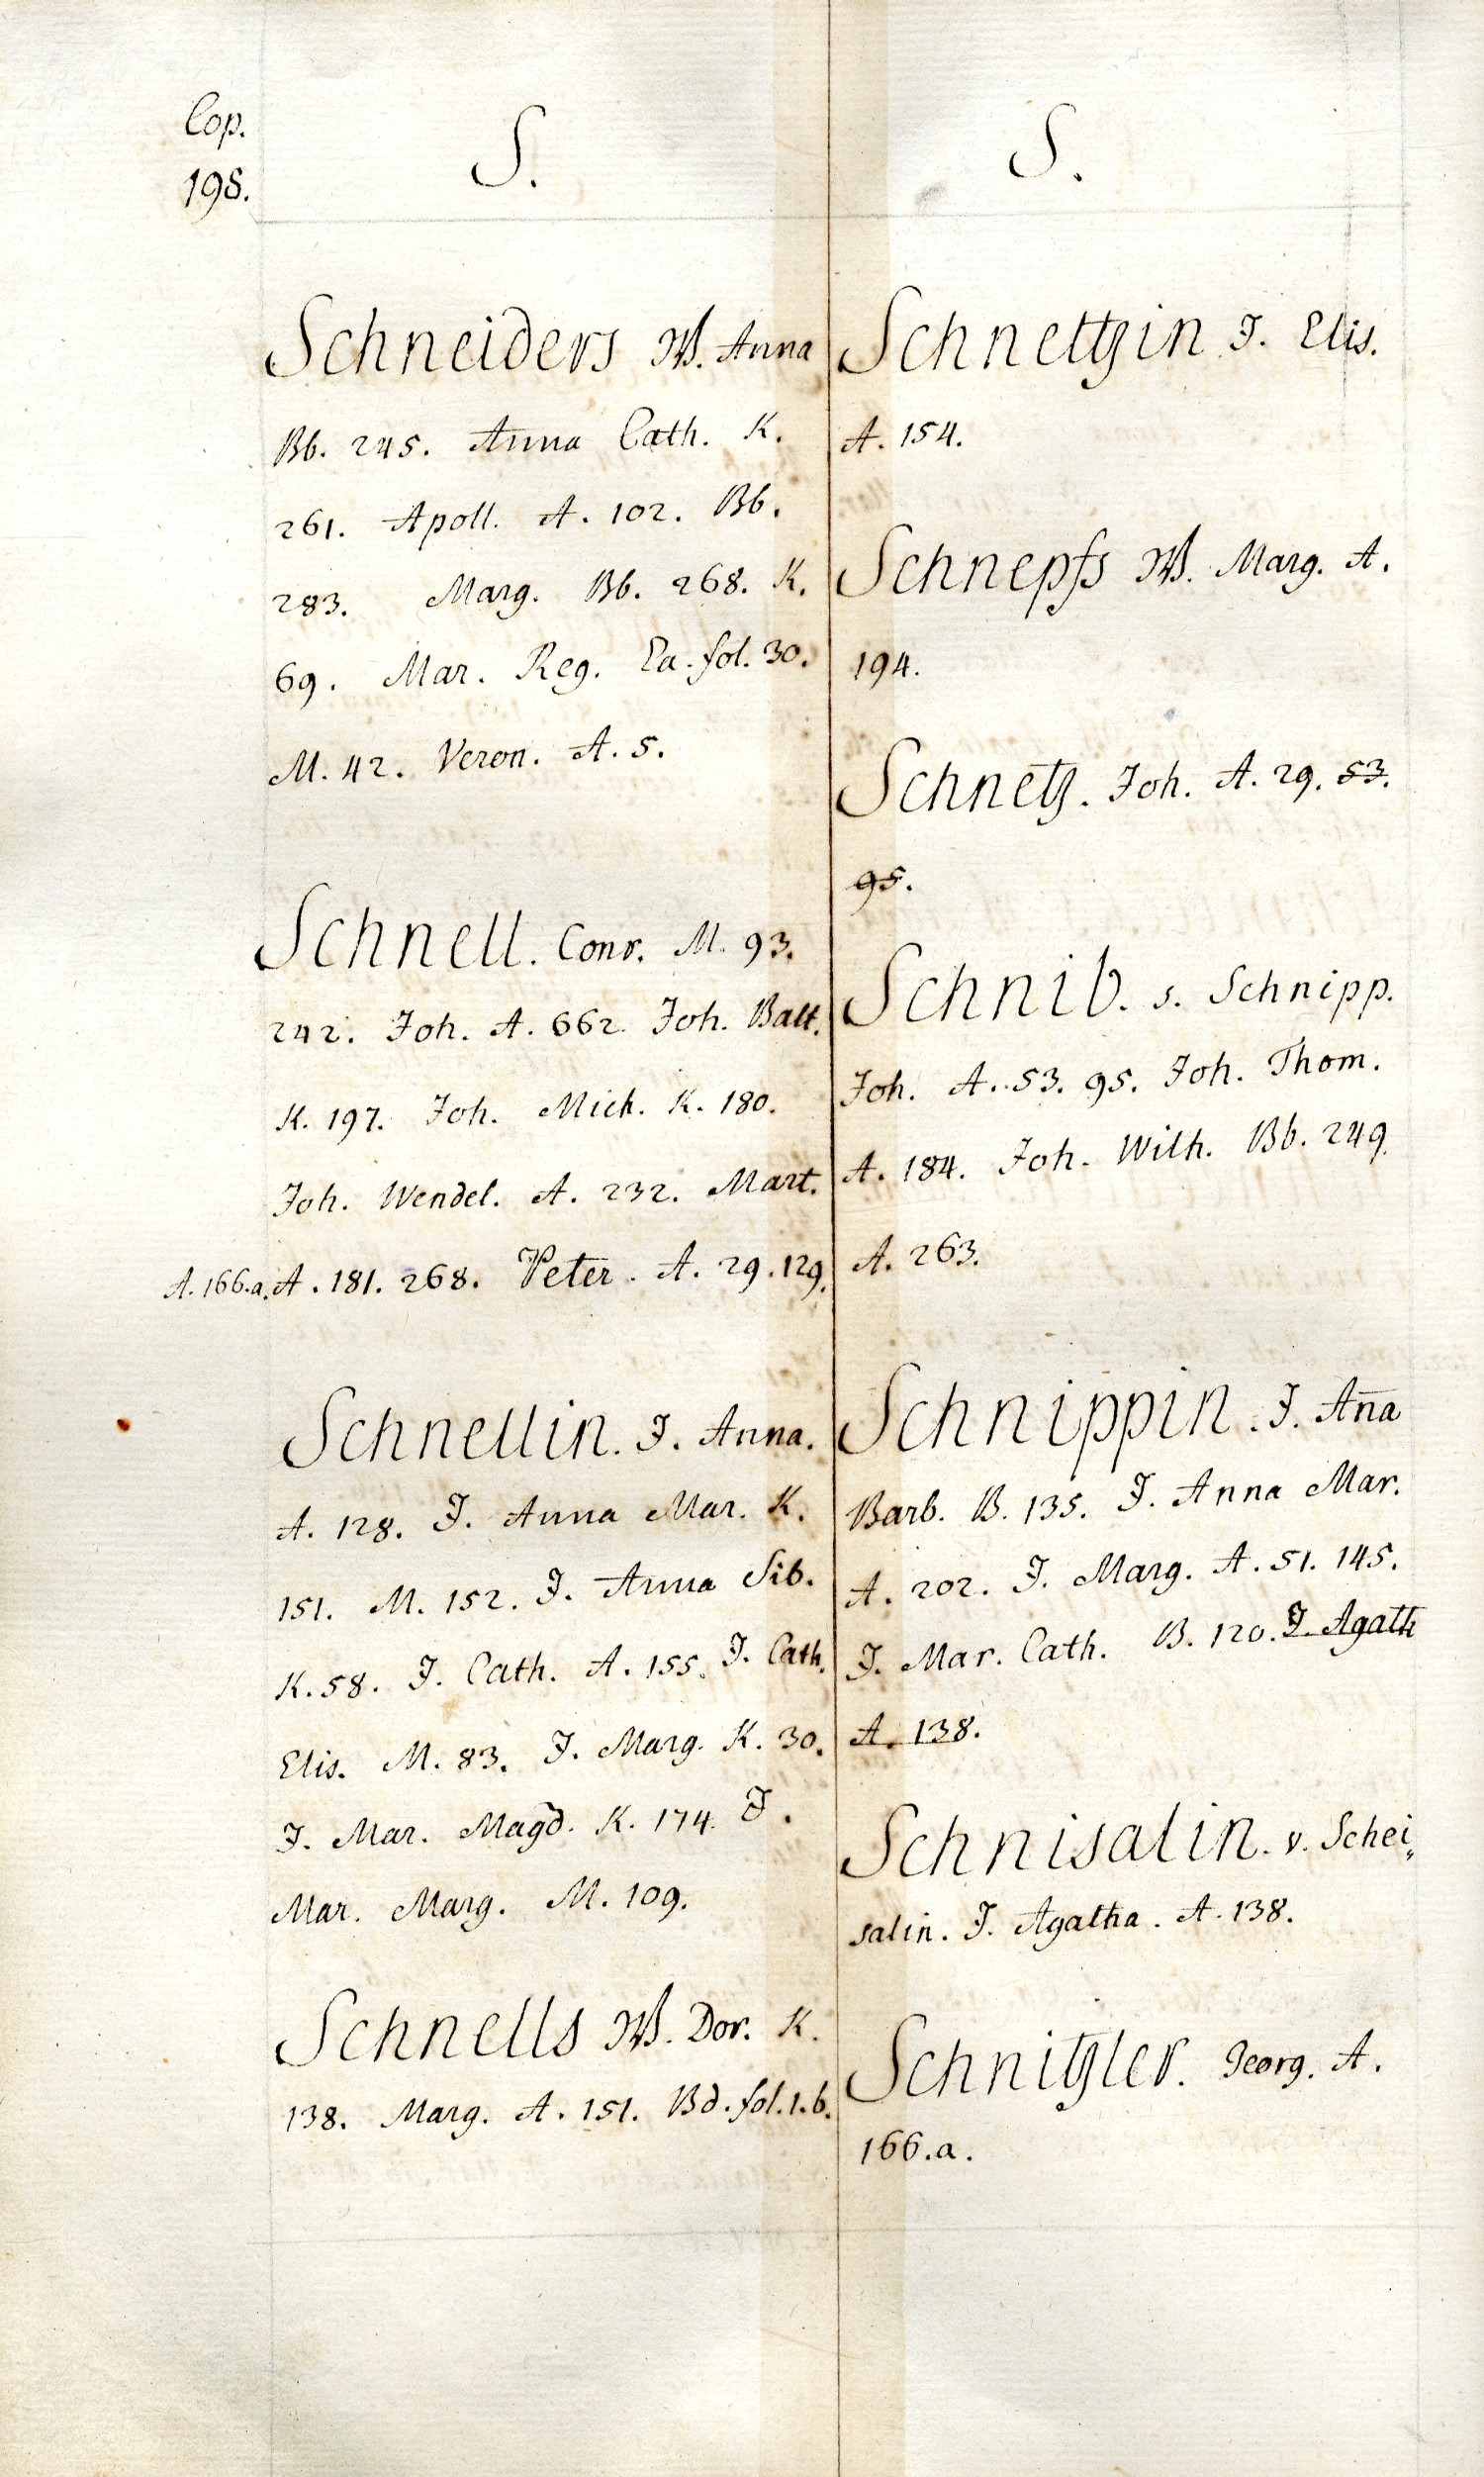 Cop.
198.
S.
Schneiders W. Anna
Bb. 245. Anna Cath. K.
261. Apoll. A. 102. Bb.
283. Marg. Bb. 268. K.
69. Mar. Reg. Ea. fol. 30.
M. 42. Veron. A. 5.
Schnell. Conr. M. 93.
242. Joh. A. 662. Joh. Balt.
K. 197. Joh. Mich. K. 180.
Joh. Wendel. A. 232. Mart.
A. 166.a. A. 181. 268. Peter. A. 29. 129.
Schnellin. J. Anna.
A. 128. J. Anna Mar. K.
151. M. 152. J. Anna Sib.
K. 58. J. Cath. A. 155. J. Cath.
Elis. M. 83. J. Marg. K. 30.
J. Mar. Magd. K. 174. J.
Mar. Marg. M. 109.
Schnells W. Dor. K.
138. Marg. A. 151. Bd. fol. 1. b.
S.
Schnettzin J. Elis.
A. 154.
Schnepfs W. Marg. A.
194.
Schnetz. Joh. A. 29. 53.
95.
Schnib. s. Schnipp.
Joh. A. 53. 95. Joh. Thom.
A. 184. Joh. Wilh. Bb. 249.
A. 263.
Schnippin. J. Aña
Barb. B. 135. J. Anna Mar.
A. 202. J. Marg. A. 51. 145.
J. Mar. Cath. B. 120. J. Agath
A. 138.
Schnisalin. v. Schei,,
salin. J. Agatha. A. 138.
Schnitzler. Georg. A.
166.a.